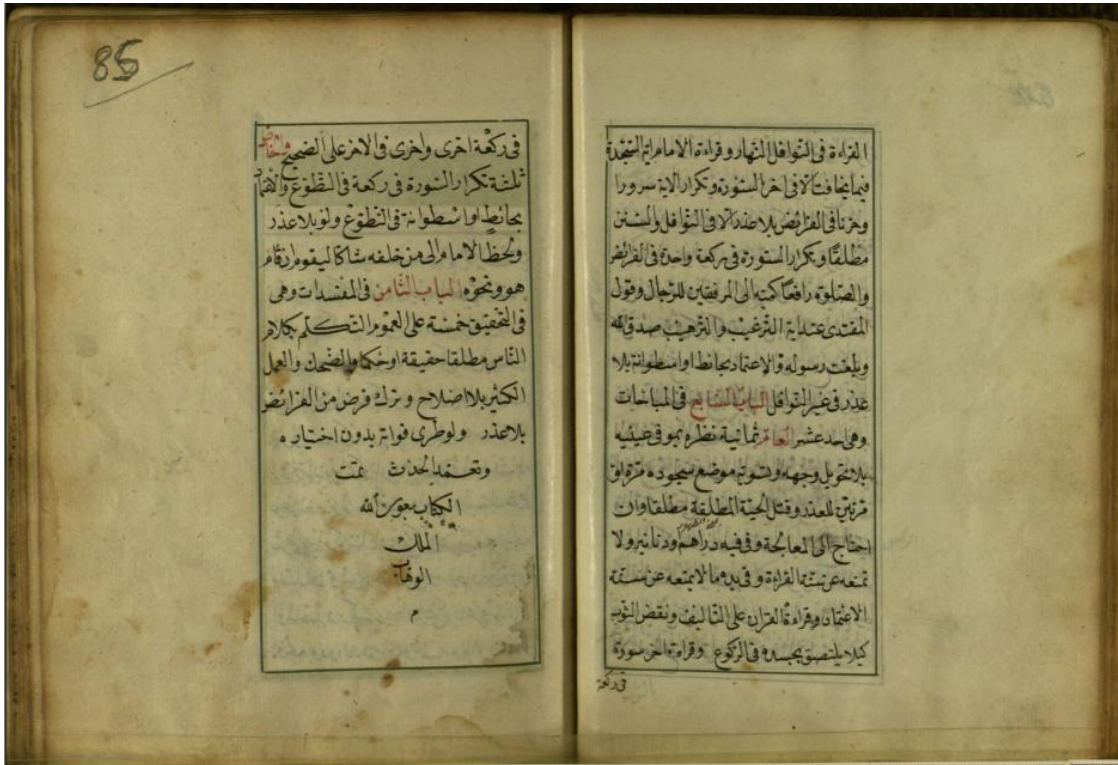 القراءة فى النوافل النهار وقراءة الامام اية السجدة
فيما يخافت الا فى اخر السورة وتكرار الاية سرورا
وحزنا فى الفرائض بلا عذر لا فى النوافل والسنن
مطلقا وتكرار السورة فى ركعة واحدة فى الفرائض
والصلوة رافعا كميه الى المرفقين للرجال وقول
المقتدى عند اية الترغيب والترهيب صدق الله
وبلغت رسوله والاعتماد بحائط او اسطوانة بلا
عذر فى غير النوافل الباب السابع فى المباحات
وهى احد عشر العام ثمانية نظره بموق عينيه
بلا تحويل وجهه وتسوية موضع سجوده مرة او
مرتين للعذر وقتل الحية المطلقة مطلقا وان
احتاج الى المعالجة وفى فيه دراهم ودنانير ولا
تمنعه عن سنة القراءة وفى يده ما لا يمنعه عن سنة
الاعتماد وقراءة القران على التاليف ونفض الثوب
كيلا يلتصق بجسده فى الركوع وقراءة اخر سورة
فى ركعة
85
فى ركعة اخرى واخرى فى الاخر على الصحيح والخاص
ثلثة تكرار السورة فى ركعة فى التطوع والاتكاء
بحائط او اسطوانة فى التطوع ولو بلا عذر
ولحظ الامام الى من خلفه شاكا ليقوم ان قام
هو ونحوه الباب الثامن فى المفسدات وهى
فى التحقيق خمسة على العموم التكلم بكلام
الناس مطلقا حقيقة او حكما والضحك والعمل
الكثير بلا اصلاح وترك فرض من الفرائض
بلا عذر ولو طرى فواته بدون اختياره
وتعمد الحدث تمت
الكتاب بعون الله
الملك
الوهاب
م